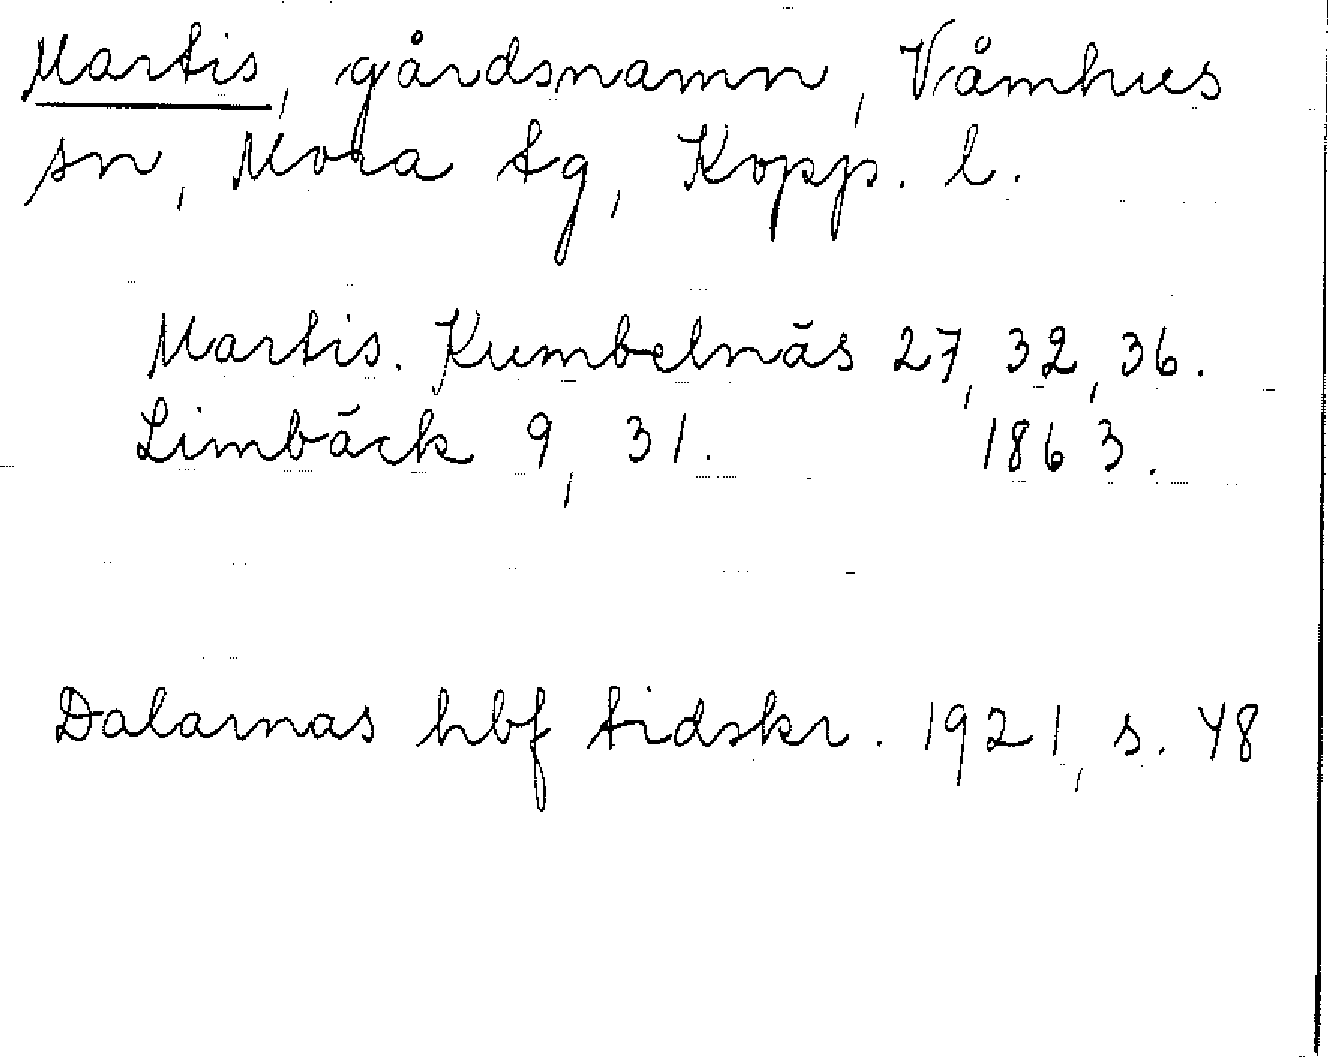 Martis, gårdsnamn, Våmhus
sn, Mora tg, Kopp. l.
Martis. Kumbelnäs 27, 32, 36.
Limbäck 9, 31. 1863.
Dalarnas hbf tidskr. 1921, s. 48